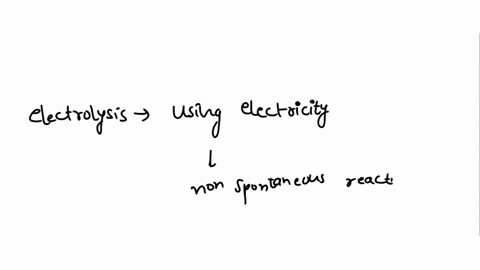 electrolysis → using electricity
↓
non spontaneous react